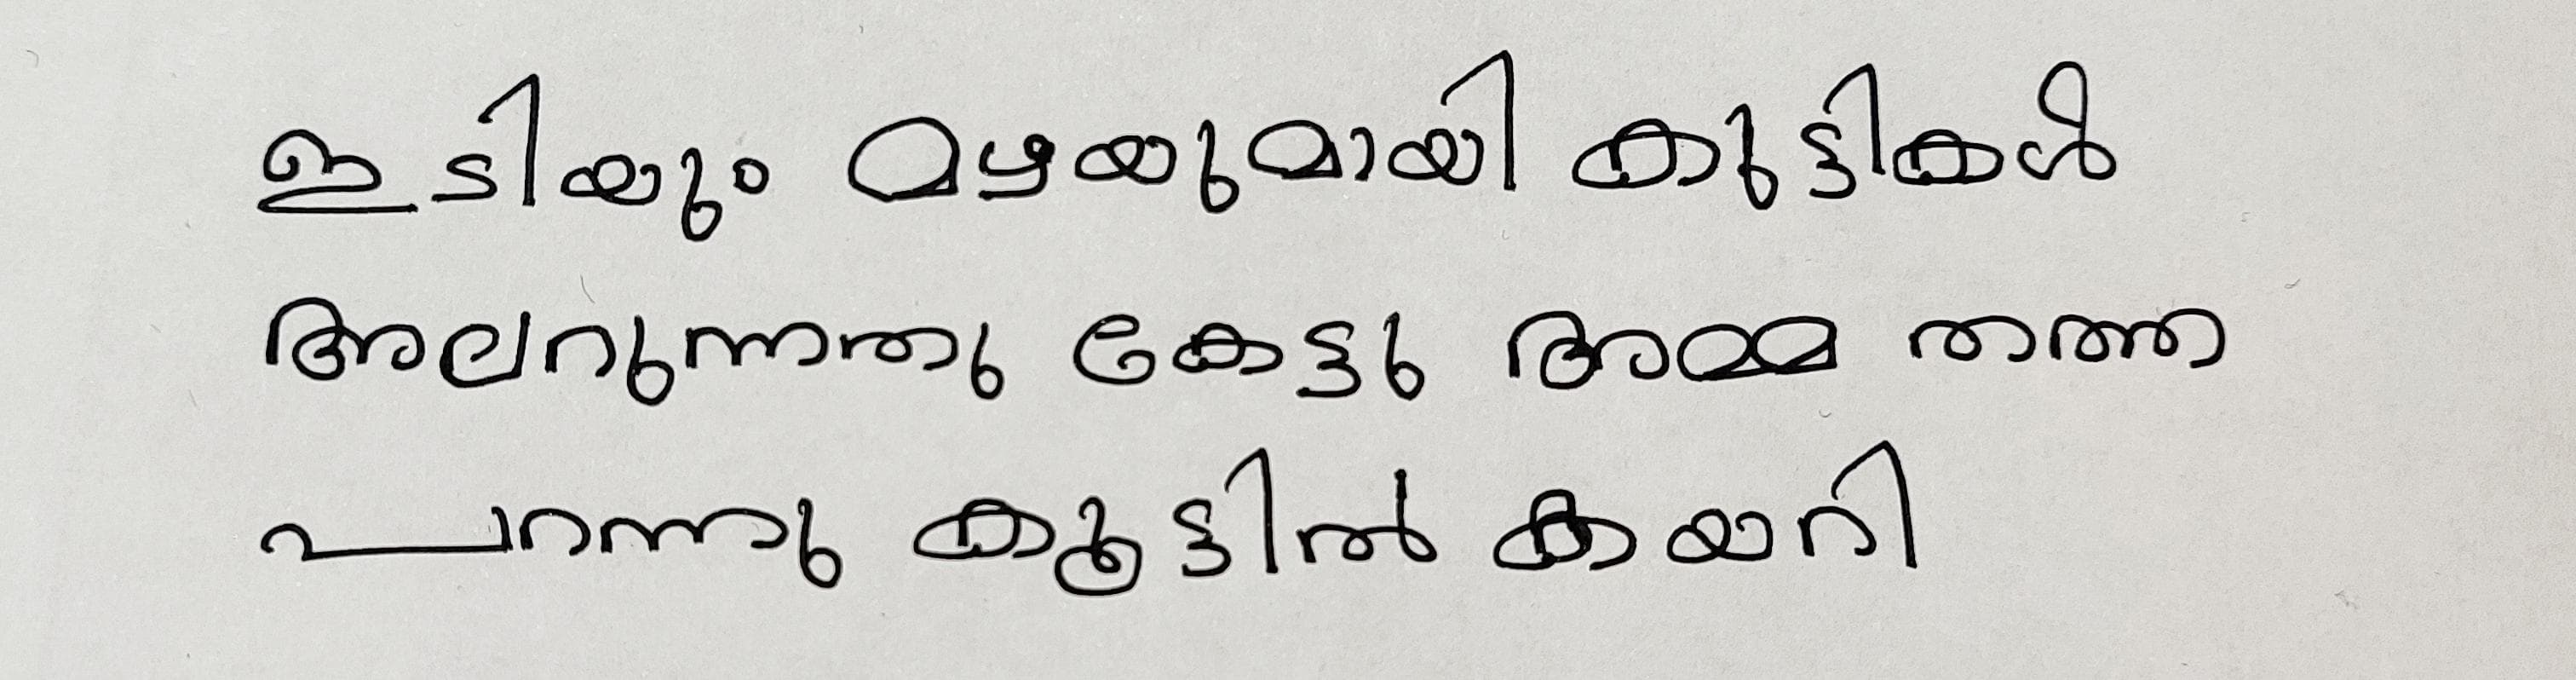 ഇടിയും മഴയുമായി കുട്ടികൾ
അലറുന്നതു കേട്ടു അമ്മ തത്ത
പറന്നു കൂട്ടിൽ കയറി